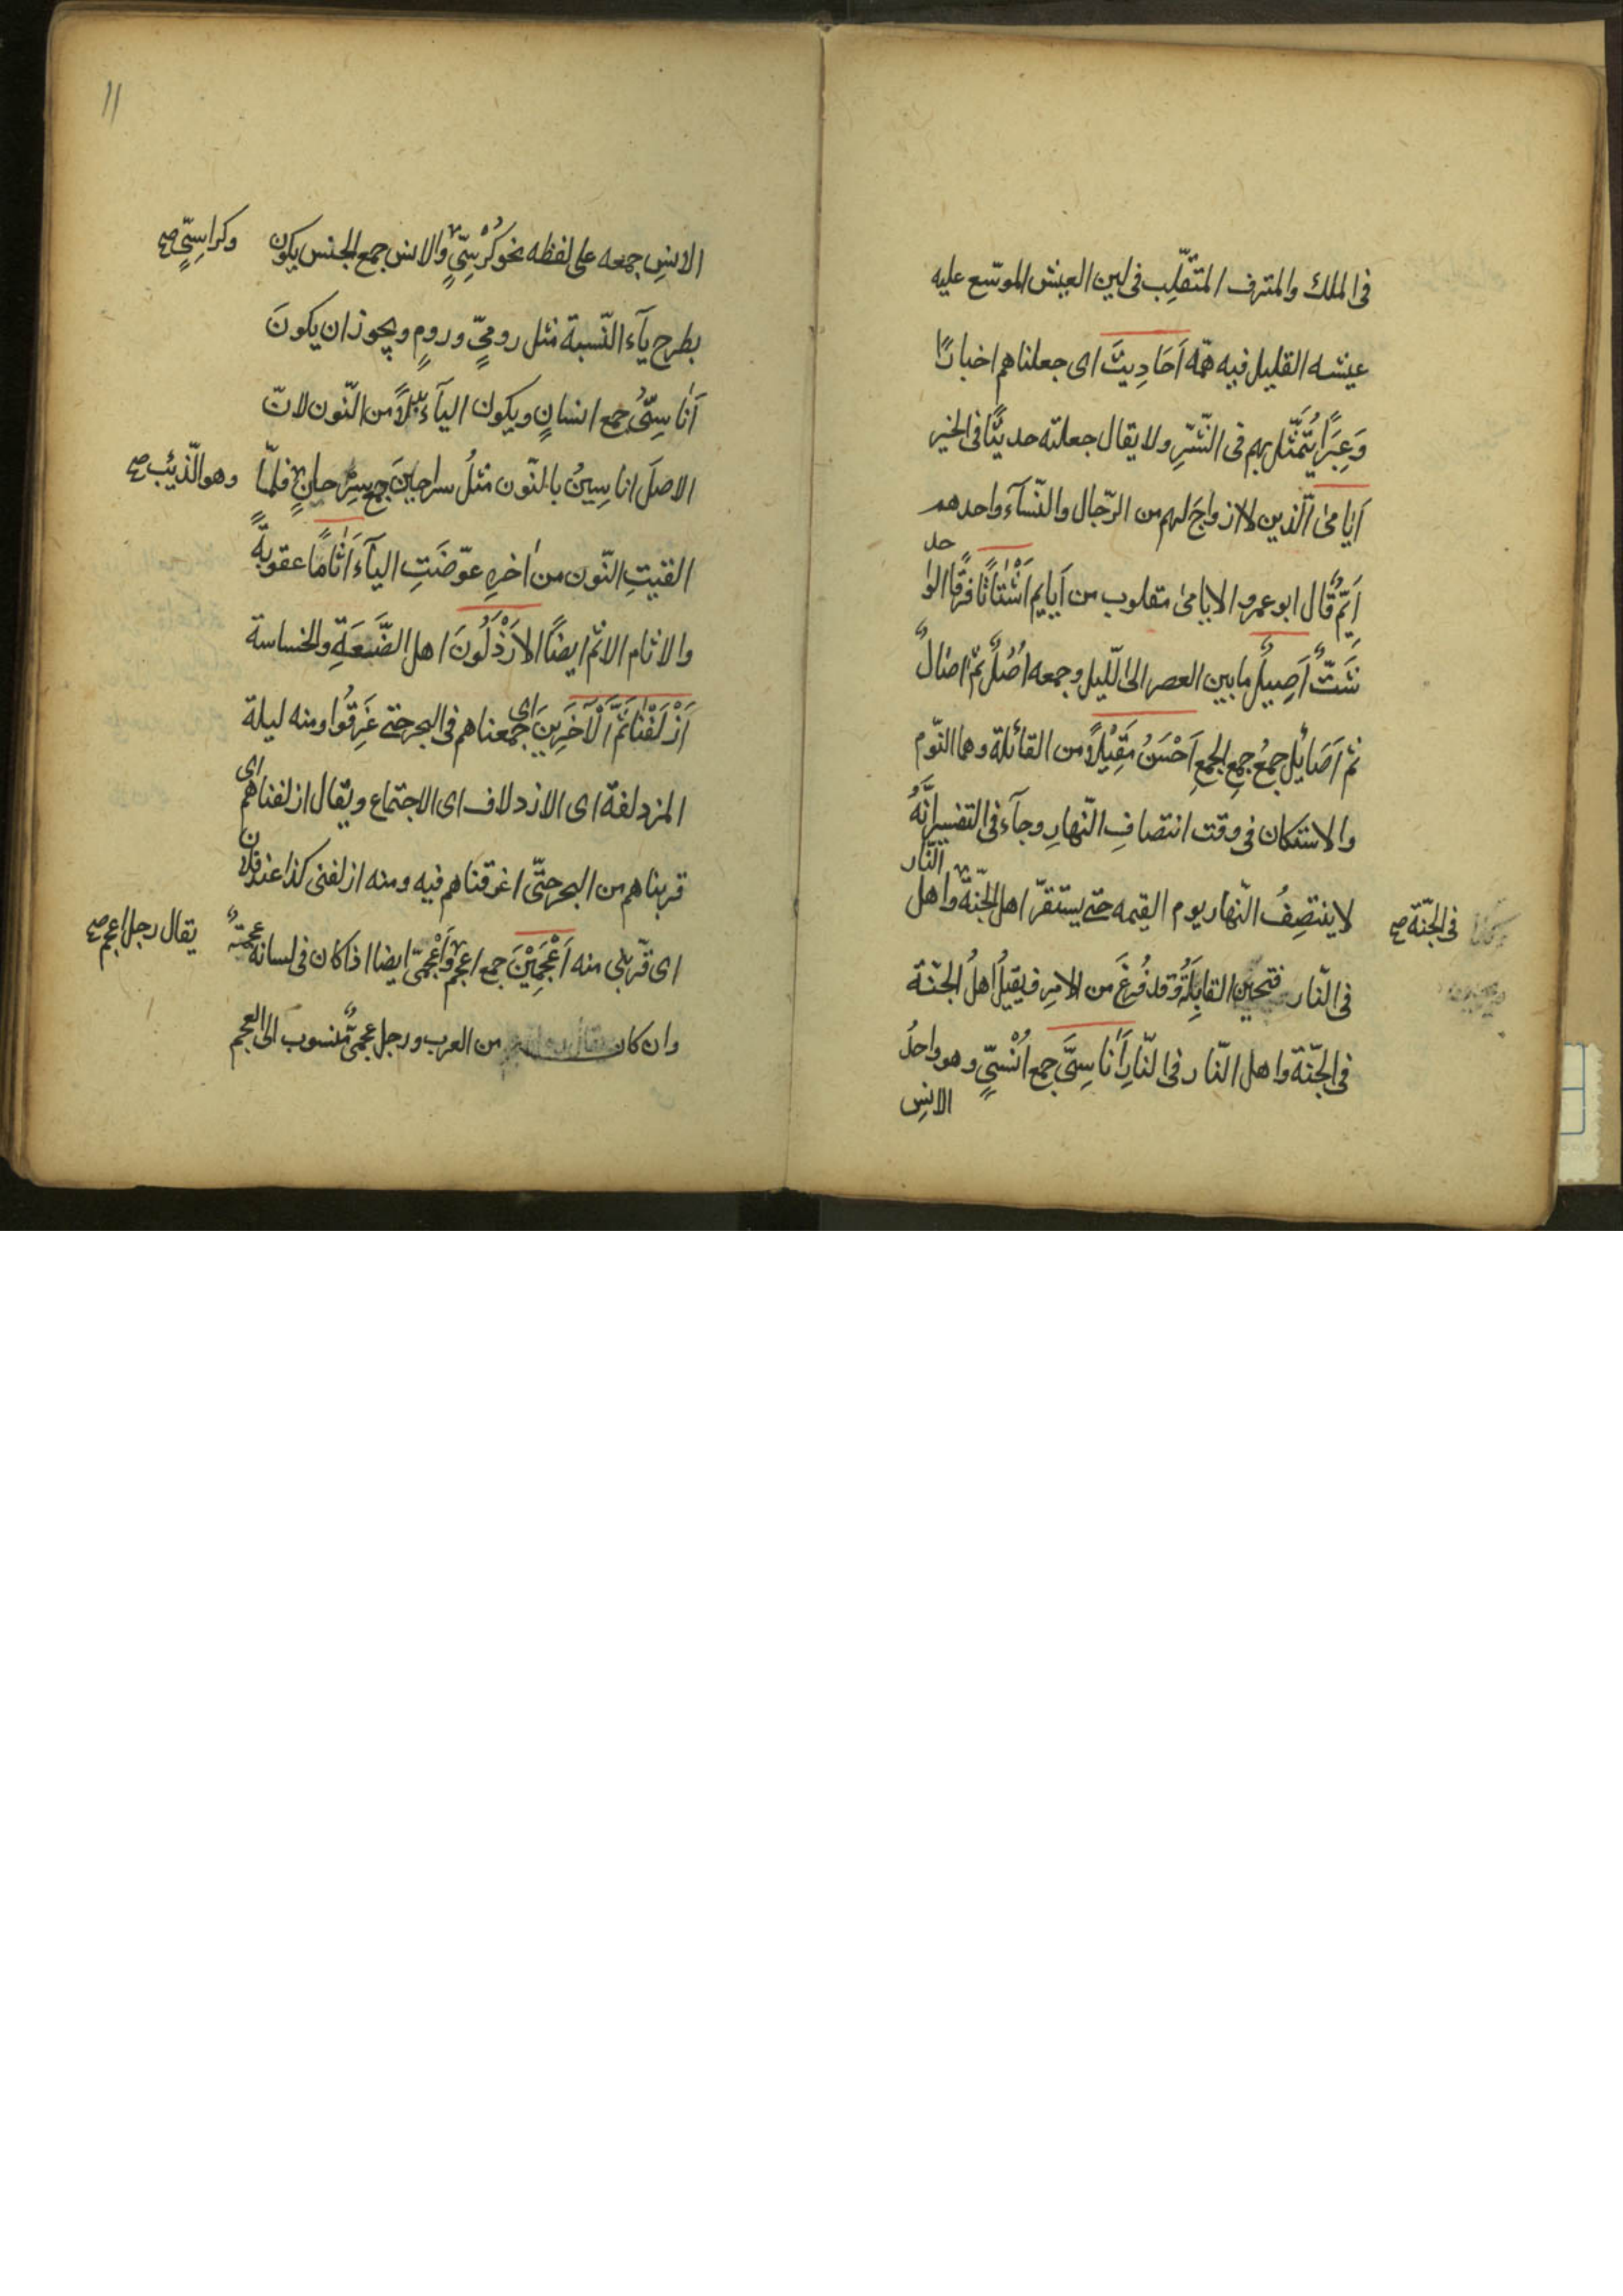 فى الملك والمترف المتقلّب فى لين العيش الموسّع عليه
عيشه القليل فيه همّه اَحَادِيثَ اى جعلناهم اخبارًا
وَعِبَرًا يُتَمَثَّل بهم فى الشّرِّ ولا يقال جعلته حديثًا فى الخير
اَيَامىٰ الّذين لا ازواجَ لهم من الرّجال والنّسآء واحدهم
اَيِّمٌ قال ابو عمرو الايامى مقلوب من اَيايم اَشْتَاتًا فرقًا الواحد
شَتٌّ اَصِيلٌ ما بين العصر الى اللّيل وجمعه اُصُلٌ ثمّ اٰصالٌ
ثم اَصَائِل جمعُ جمعِ الجمعِ اَحْسَنُ مَقِيْلًا من القائلة وهما النّوم
والاستكان فى وقت انتصافِ النّهارِ وجآء فى التفسير انّهُ
لا ينتصِفُ النّهار يوم القيمه حتى يستقرّ اهل الجنّة واهل النّار
فى الجنّة صح
فى النّار فتحين القايِلَةُ وقد فُرِغَ من الامرِ فيقيلُ اهلُ الجنّة
فى الجنّة واهل النّار فى النّارِ اَناسِىَّ جمع اُنْسِىٍّ وهو واحدُ
الانسِ
11
الانسِ جمعه على لفظه نحو كُرْسِىٍّ والانس جمع الجنس يكون
وكراسِىٍّ صح
بطرح يآء النّسبة مثل رومىٍّ ورومٍ ويجوز ان يكونَ
اَناسِىُّ جمع انسانٍ ويكون اليآء بدلًا من النّون لانّ
الاصلَ اناسِينُ بالنّون مثلُ سراحينَ جمع سِرْحانٍ فلمّا
وهو الذّيب صح
القيتِ النّون من اٰخرِهِ عوّضَتِ اليآء اَثَامًا عقوبةً
والاثام الاثم ايضًا الاَرْذَلُونَ اهل الضَّعَةِ والخساسة
اَزْلَفْنَا ثَمَّ الْاٰخَرِينَ اى جمعناهم فى البحر حتى غَرِقُوا ومنه ليلة
المزدلفة اى الازدلاف اى الاجتماع ويقال ازلفناهم اى
قربناهم من البحر حتّى اغرقناهم فيه ومنه ازلفنى كذا عند فلان
اى قرّبنى منه اَعْجَمِيْنَ جمع اعجم واَعْجَمىّ ايضا اذا كان فى لسانه عجمةٌ
يقال رجل اعجم صح
وان كان من العرب ورجل عجمىٌّ منسوب الى العجم